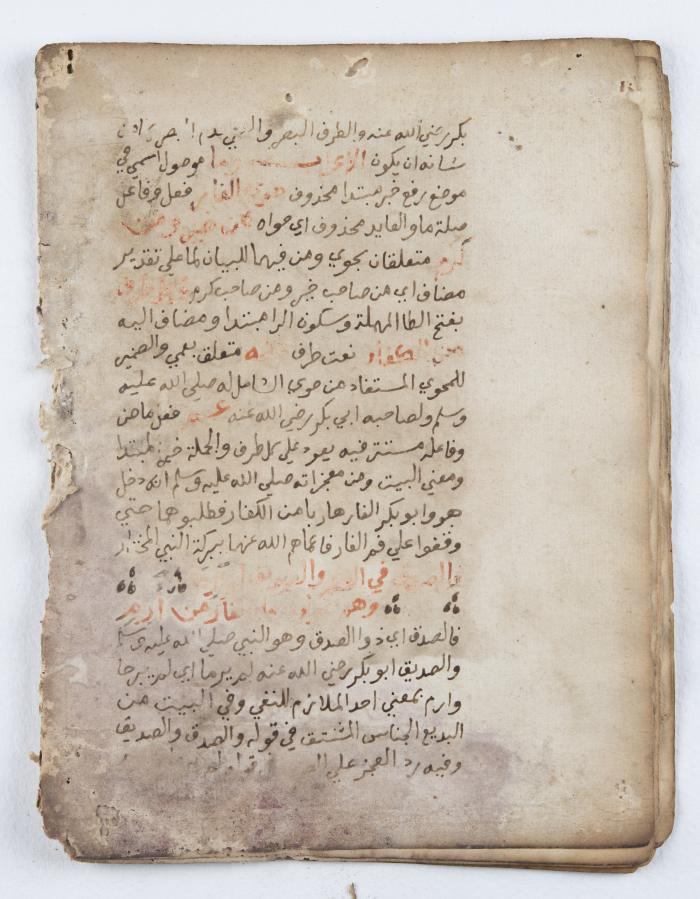 بكر رضي الله عنه والطرف البصر والعمي عدم البصر
شانه ان يكون الاعراب وما موصول اسمي في
موضع رفع خبر مبتدا محذوف حوي الغار فعل وفاعل
صلة ما والعايد محذوف اي حواه من خير ومن
كرم متعلقان بحوي ومن فيهما للبيان لما علي تقدير
مضاف اي من صاحب خير ومن صاحب كرم وكل طرف
بفتح الطا المهملة وسكون الرا مبتدا ومضاف اليه
من الكفار نعت طرف عنه متعلق بعمي والضمير
للمحوي المستفاد من حوي الشامل له صلي الله عليه
وسلم ولصاحبه ابي بكر رضي الله عنه عمي فعل ماض
وفاعله مستتر فيه يعود علي كل طرف والجملة خبر المبتدا
ومعني البيت ومن معجزاته صلي الله عليه وسلم انه دخل
هو وابو بكر الغار هاربا من الكفار فطلبوهما حتي
وقفوا علي فم الغار فاعماهم الله عنهما ببركة النبي المختار
فالصدق في الغار والصديق لم يرما
وهم يقولون ما بالغار من ارم
فالصدق اي ذو الصدق وهو النبي صلي الله عليه وسلم
والصديق ابو بكر رضي الله عنه لم يرما اي لم يبرحا
وارم بمعني احد الملازم للنفي وفي البيت من
البديع الجناس المشتق في قوله والصدق والصديق
وفيه رد العجز علي